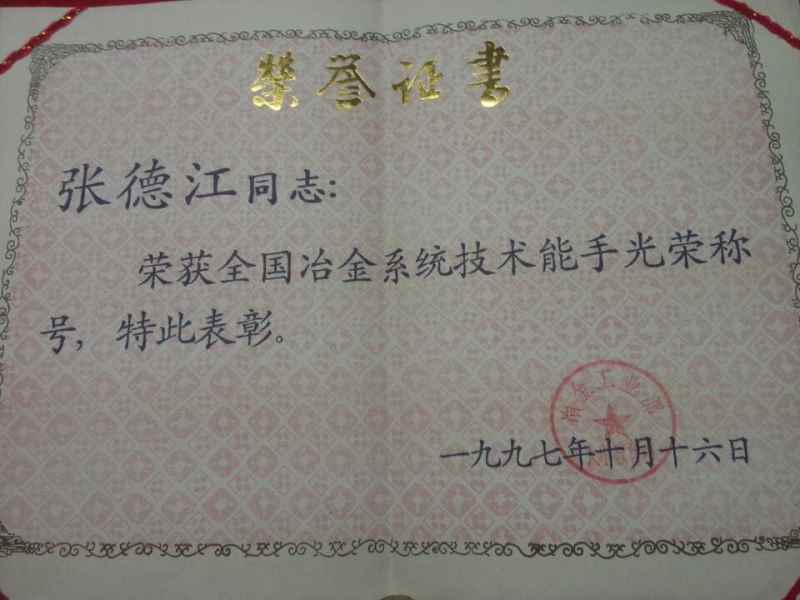 荣誉证书
张德江同志:
荣获全国冶金系统技术能手光荣称
号,特此表彰。
冶金工业部
一九九七年十月十六日